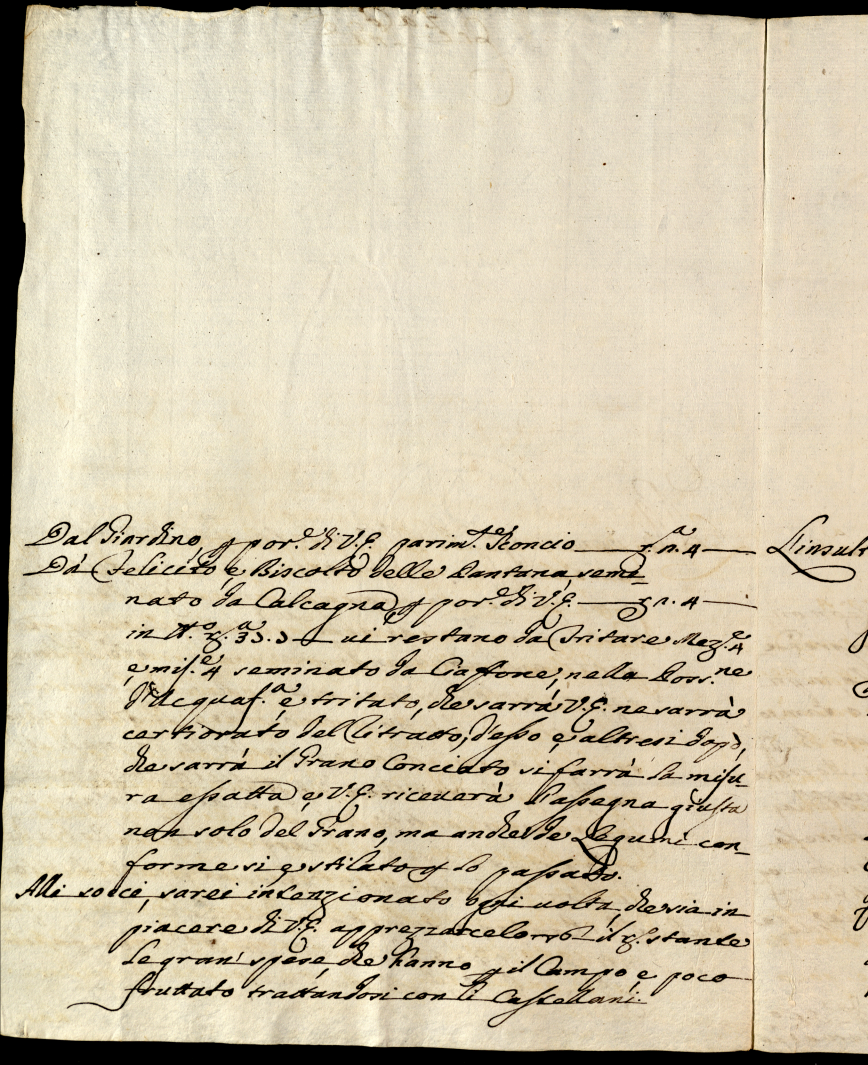 Dal Giardino p por.e di V.E. parim.te Sconcio — r.a n. 4 —
Da Felicito e Biscolto delle Lantana semi-
nato da Calcagna p por.e di V.E. — r. n. 4 —
in tt.o r.a 33.3 — vi restano da tritare Mez.e 4
e mis.e 4 seminato da Ciaffone, nella Poss.ne
d'Acquas.a e tritato, che sarrà V.E. ne sarrà
certiorato del Ritratto, d'esso e altresi dopo,
che sarrà il Grano Conciato si farrà la misu-
ra essatta e V.E. riceverà l'assegna giusta
non solo del Grano, ma anche de Legumi con-
forme si e stilato p lo passato.
Alli socci, sarei intenzionato ogni volta, che sia in
piacere di V.E. apprezzarcelo il r.stante
le gran' spese, che hanno p il Campo, e poco
fruttato trattandosi con li Castellani.
L'insult